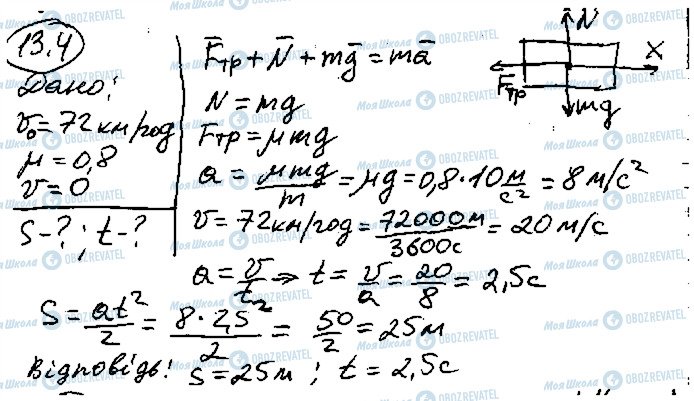 13.4
Дано:
v₀=72км/год
μ=0,8
v=0
S-?; t-?
F̄тр+N̄+mḡ=mā
N=mg
Fтр=μmg
a=μmg/m=μg=0,8·10м/с²=8м/с²
v=72км/год=72000м/3600с=20м/с
a=v/t⇒t=v/a=20/8=2,5с
S=at²/2=8·2,5²/2=50/2=25м
Відповідь: S=25м; t=2,5с
N
X
Fтр
mg
Моя Школа OBOZREVATEL